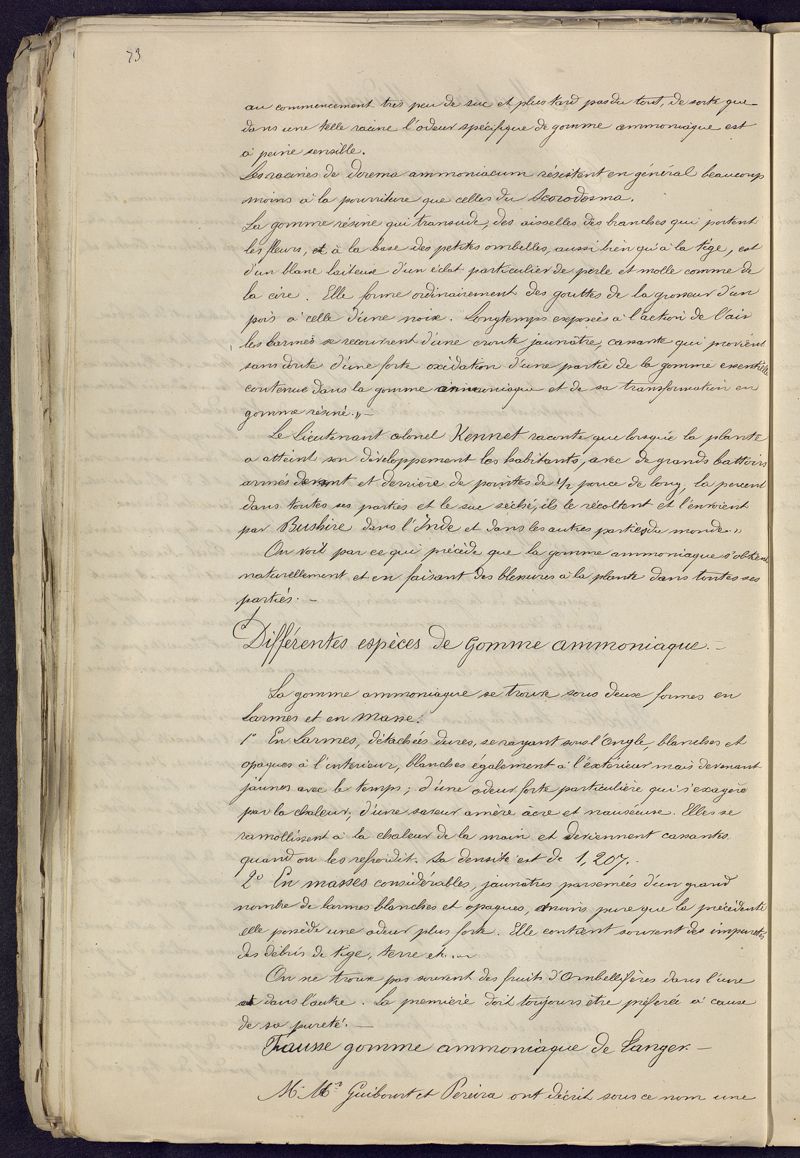 73
au commencement très peu de suc et plus tard pas du tout, de sorte que
dans une telle racine l'odeur spécifique de gomme ammoniaque est
à peine sensible.
Les racines de Dorema ammoniacum résistent en général beaucoup
moins à la pourriture que celles du Scorodosma.
La gomme résine qui transude, des aisselles des branches qui portent
les fleurs, et à la base des petites ombelles, aussi bien qu'à la tige, est
d'un blanc laiteux d'un éclat particulier de perle et molle comme de
la cire. Elle forme ordinairement des gouttes de la grosseur d'un
pois à celle d'une noix. Longtemps exposées à l'action de l'air
les larmes se recouvrent d'une croute jaunâtre, cassante qui provient
sans doute d'une forte oxidation d'une partie de la gomme essentielle
contenue dans la gomme ammoniaque et de sa transformation en
gomme résine.» —
Le Lieutenant colonel Kennet raconte que lorsque la plante
a atteint son développement les habitants, avec de grands battoirs
armés devant et derrière de pointes de 1/2 pouce de long, la percent
dans toutes ses parties et le suc séché, ils le récoltent et l'envoient
par Bushire dans l'Inde et dans les autres parties du monde.»
On voit par ce qui précède que la gomme ammoniaque s'obtient
naturellement et en faisant des blessures à la plante dans toutes ses
parties. —
Différentes espèces de Gomme ammoniaque. —
La gomme ammoniaque se trouve sous deux formes en
Larmes et en Masse:
1° En Larmes, détachées dures, se rayant sous l'ongle, blanches et
opaques à l'interieur, blanches également à l'extérieur mais devenant
jaunes avec le temps; d'une odeur forte particulière qui s'exagère
par la chaleur, d'une saveur amère âcre et nauséeuse. Elles se
ramollissent à la chaleur de la main et deviennent cassantes
quand on les refroidit. Sa densité est de 1,207.
2° En masses considérables, jaunâtres parsemées d'un grand
nombre de larmes blanches et opaques, moins pure que la précédente
elle possède une odeur plus forte. Elle contient souvent des impuretés,
des débris de tige, terre etc. —
On ne trouve pas souvent des fruits d'Ombellifères dans l'une
et dans l'autre. La première doit toujours être préférée à cause
de sa pureté. —
Fausse gomme ammoniaque de Tanger. —
M. Mrs Guibourt et Pereira ont décrit sous ce nom une